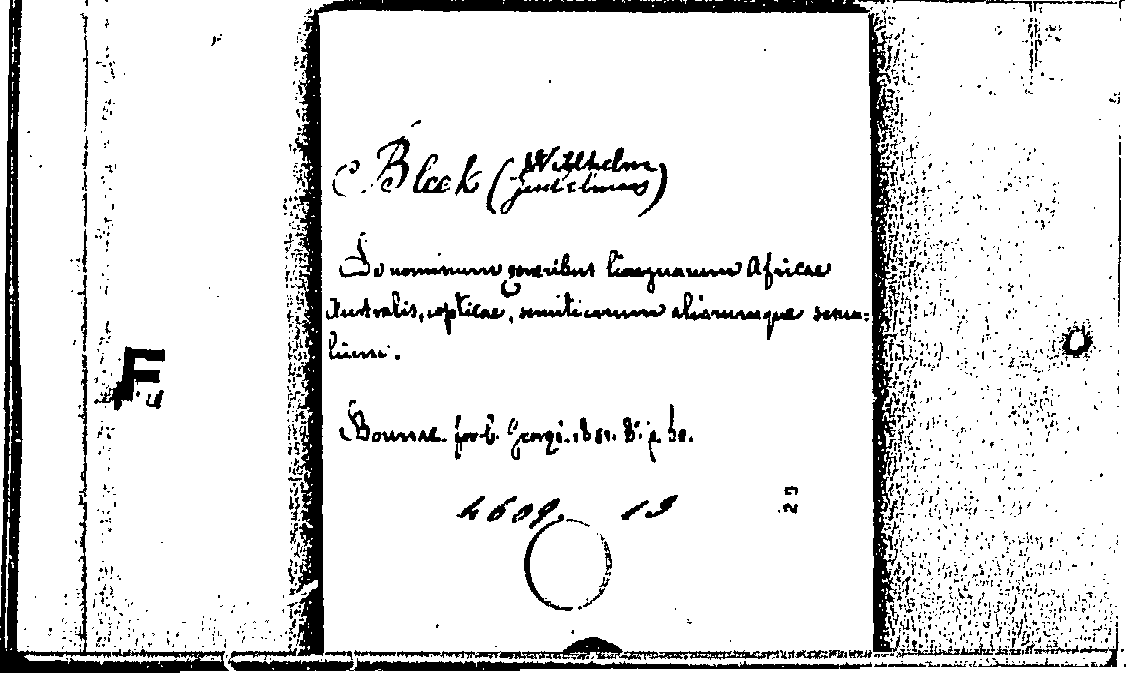 Bleek (Wilhelm
De nominum generibus linguarum Africae
Australis, copticae, semiticarum aliarumque sexua-
lium.
Bonnae. 1851. 8° p. 60.
4609. 19
29